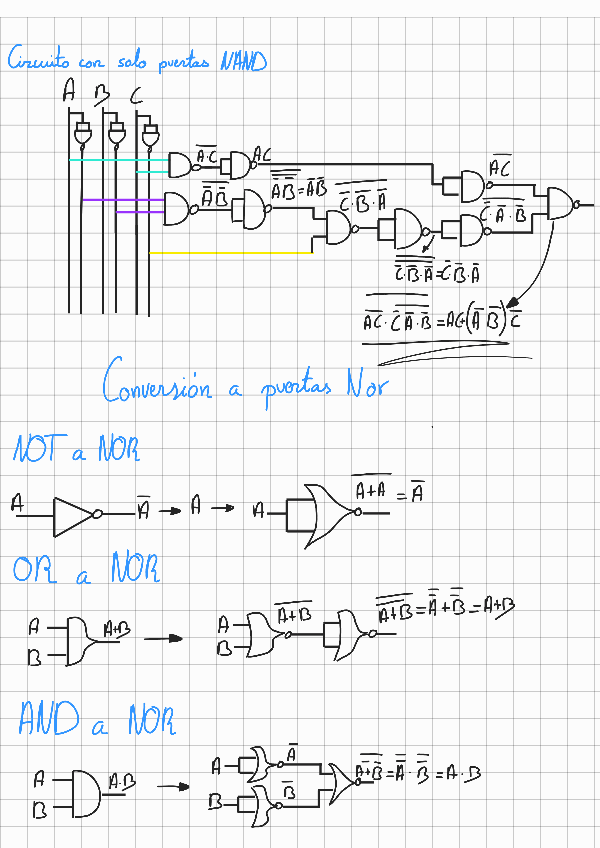 Circuito con solo puertas NAND
A B C
A̅·̅C̅ AC A̅C̅
A̅B̅ A̿B̿=A̅B̅ C̅·B̅·A̅ C̅·A̅·B̅
C̅·B̅·A̅=C̅B̅·A̅
A̅C̅·C̅A̅·B̅=AC+(A̅ B̅)C̅
Conversión a puertas Nor
NOT a NOR
A A̅ → A → A A̅+̅A̅ = A̅
OR a NOR
A B A+B → A B A̅+̅B̅ A̅+̅B̅=A̿+B̿=A+B
AND a NOR
A B A·B → A B A̅ B̅ A̅+B̅=A̿·B̿=A·B